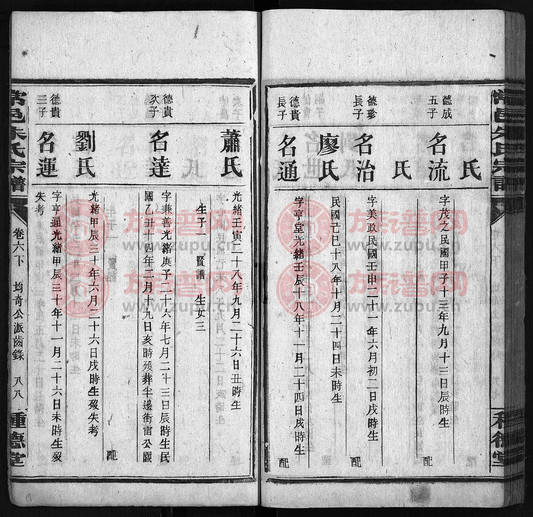 常邑朱氏宗譜
氏
德成
五子
名流
字茂之民國甲子十三年九月十三日辰時生
配
氏
德珍
長子
名治
字美政民國壬申二十一年六月初二日戌時生
配
廖氏
民國己巳十八年十月二十四日未時生
德貴
長子
名通
字亨堂光緒壬辰十八年十一月二十四日戌時生
配
蕭氏
光緒壬寅二十八年九月二十六日丑時生
生子
賢譜
生女三
德貴
次子
名達
字兼善光緒庚子二十六年七月二十三日辰時生民
國乙丑十四年二月十九日亥時歿葬半邊街雷公園
配
劉氏
光緒甲辰三十年六月二十六日戌時生歿失考
德貴
三子
名運
字亨通光緒甲辰三十年十一月二十六日未時生歿
失考
常邑朱氏宗譜
卷六下
均青公派齒錄
八八
種德堂
族譜网
www.zupu.cn